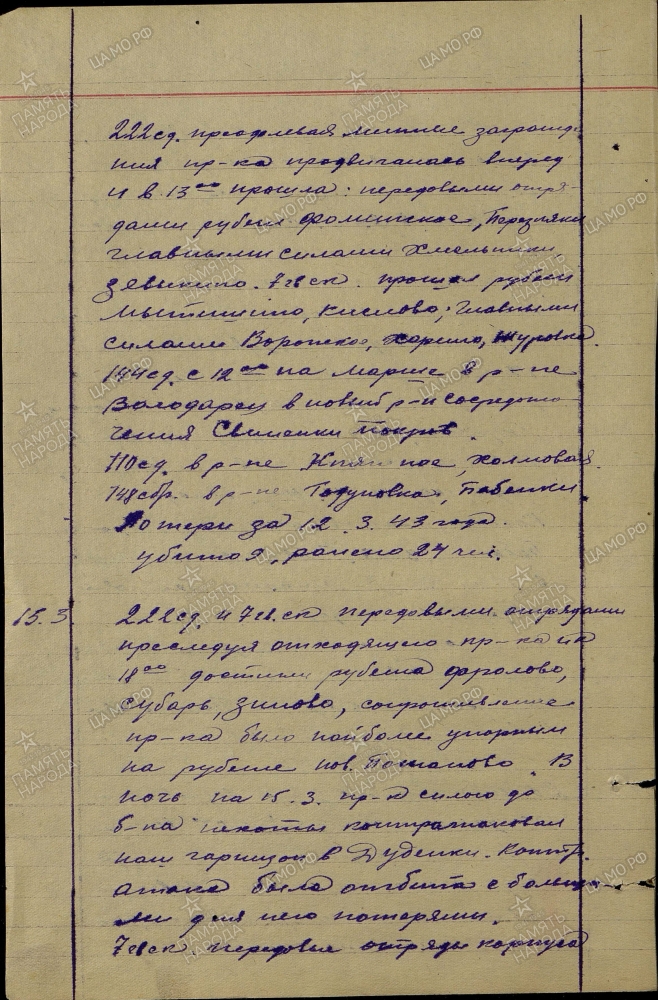 222 сд. преодолевая минные загражде
ния пр-ка продвигалась вперед
и в 13 00 прошла: передовыми отря-
дами рубеж Фоминское,
главными силами Хмельники
7 гв ск. прошел рубеж
Мытищино, Кислово, главными
силами Воронское, Харино, Журовка.
144 сд. с 12 00 на марше в р-не
Володарец в новый р-н сосредото-
чения Свиненки
110 сд. в р-не холмовая.
148 сбр. в р-не Годуновка, Бабенки
Потери за 12. 3. 43 года.
убито 9, ранено 24 чел.
15.3. 222 сд. и 7 гв. ск передовыми отрядами
преследуя отходящего пр-ка и к
18 00 достигли рубежа Фролово,
Субарь, Зиново, сопротивление
пр-ка было наиболе упорным
на рубеже пов. Потапово. В
ночь на 15.3. пр-к силою до
б-на пехоты контратаковал
наш гарнизон в Дубенки. Контр-
атака была отбита с больши-
ми для него потерями.
7 гв ск. передовые отряды корпуса
ПАМЯТЬ НАРОДА
ЦАМО.РФ